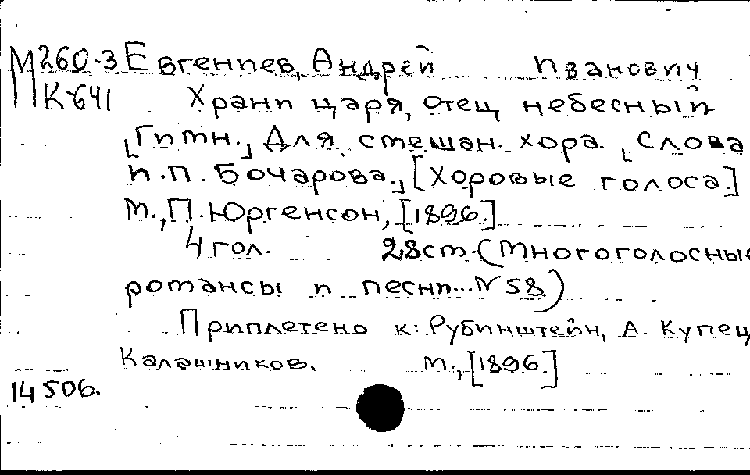 М260-3 Евгениев, Андрей Иванович
К-641 Храни царя, отец небесный
[Гимн.] Для смешан. хора. [Слова
И.П. Бочарова.] [Хоровые голоса.]
М., П. Юргенсон, [1896.]
4 гол. 28 ст. (Многоголосные
романсы и песни. N 58)
Приплетено к: Рубинштейн, А. Купец
Калашников. М., [1896.]
14506.